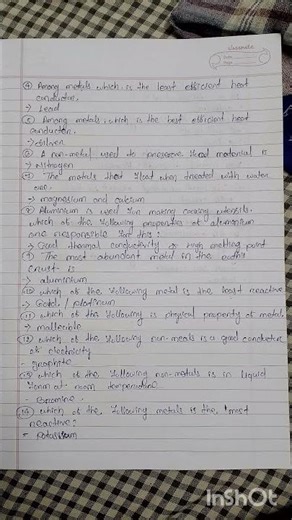 classmate
④ Among metals which is the least efficient heat
conductor.
→ Lead
⑤ Among metals, which is the best efficient heat
conductor.
→ silver
⑥ A non-metal used to preserve food material is
→ Nitrogen
⑦ The metals that float when treated with water
are.
→ magnesium and calcium
⑧ Aluminium is used for making cooking utensils.
which of the following properties of aluminium
are responsible for this:
→ Good thermal conductivity or high melting point
⑨ The most abundant metal in the earth's
crust is
→ aluminium
⑩ which of the following metal is the least reactive
→ Gold / platinum
⑪ which of the following is physical property of metals
→ malleable
⑫ which of the following non-metals is a good conductor
of electricity
- graphite
⑬ which of the following non-metals is in liquid
form at room temperature
- Bromine
⑭ which of the following metals is the most
reactive:
- potassium
InShOt